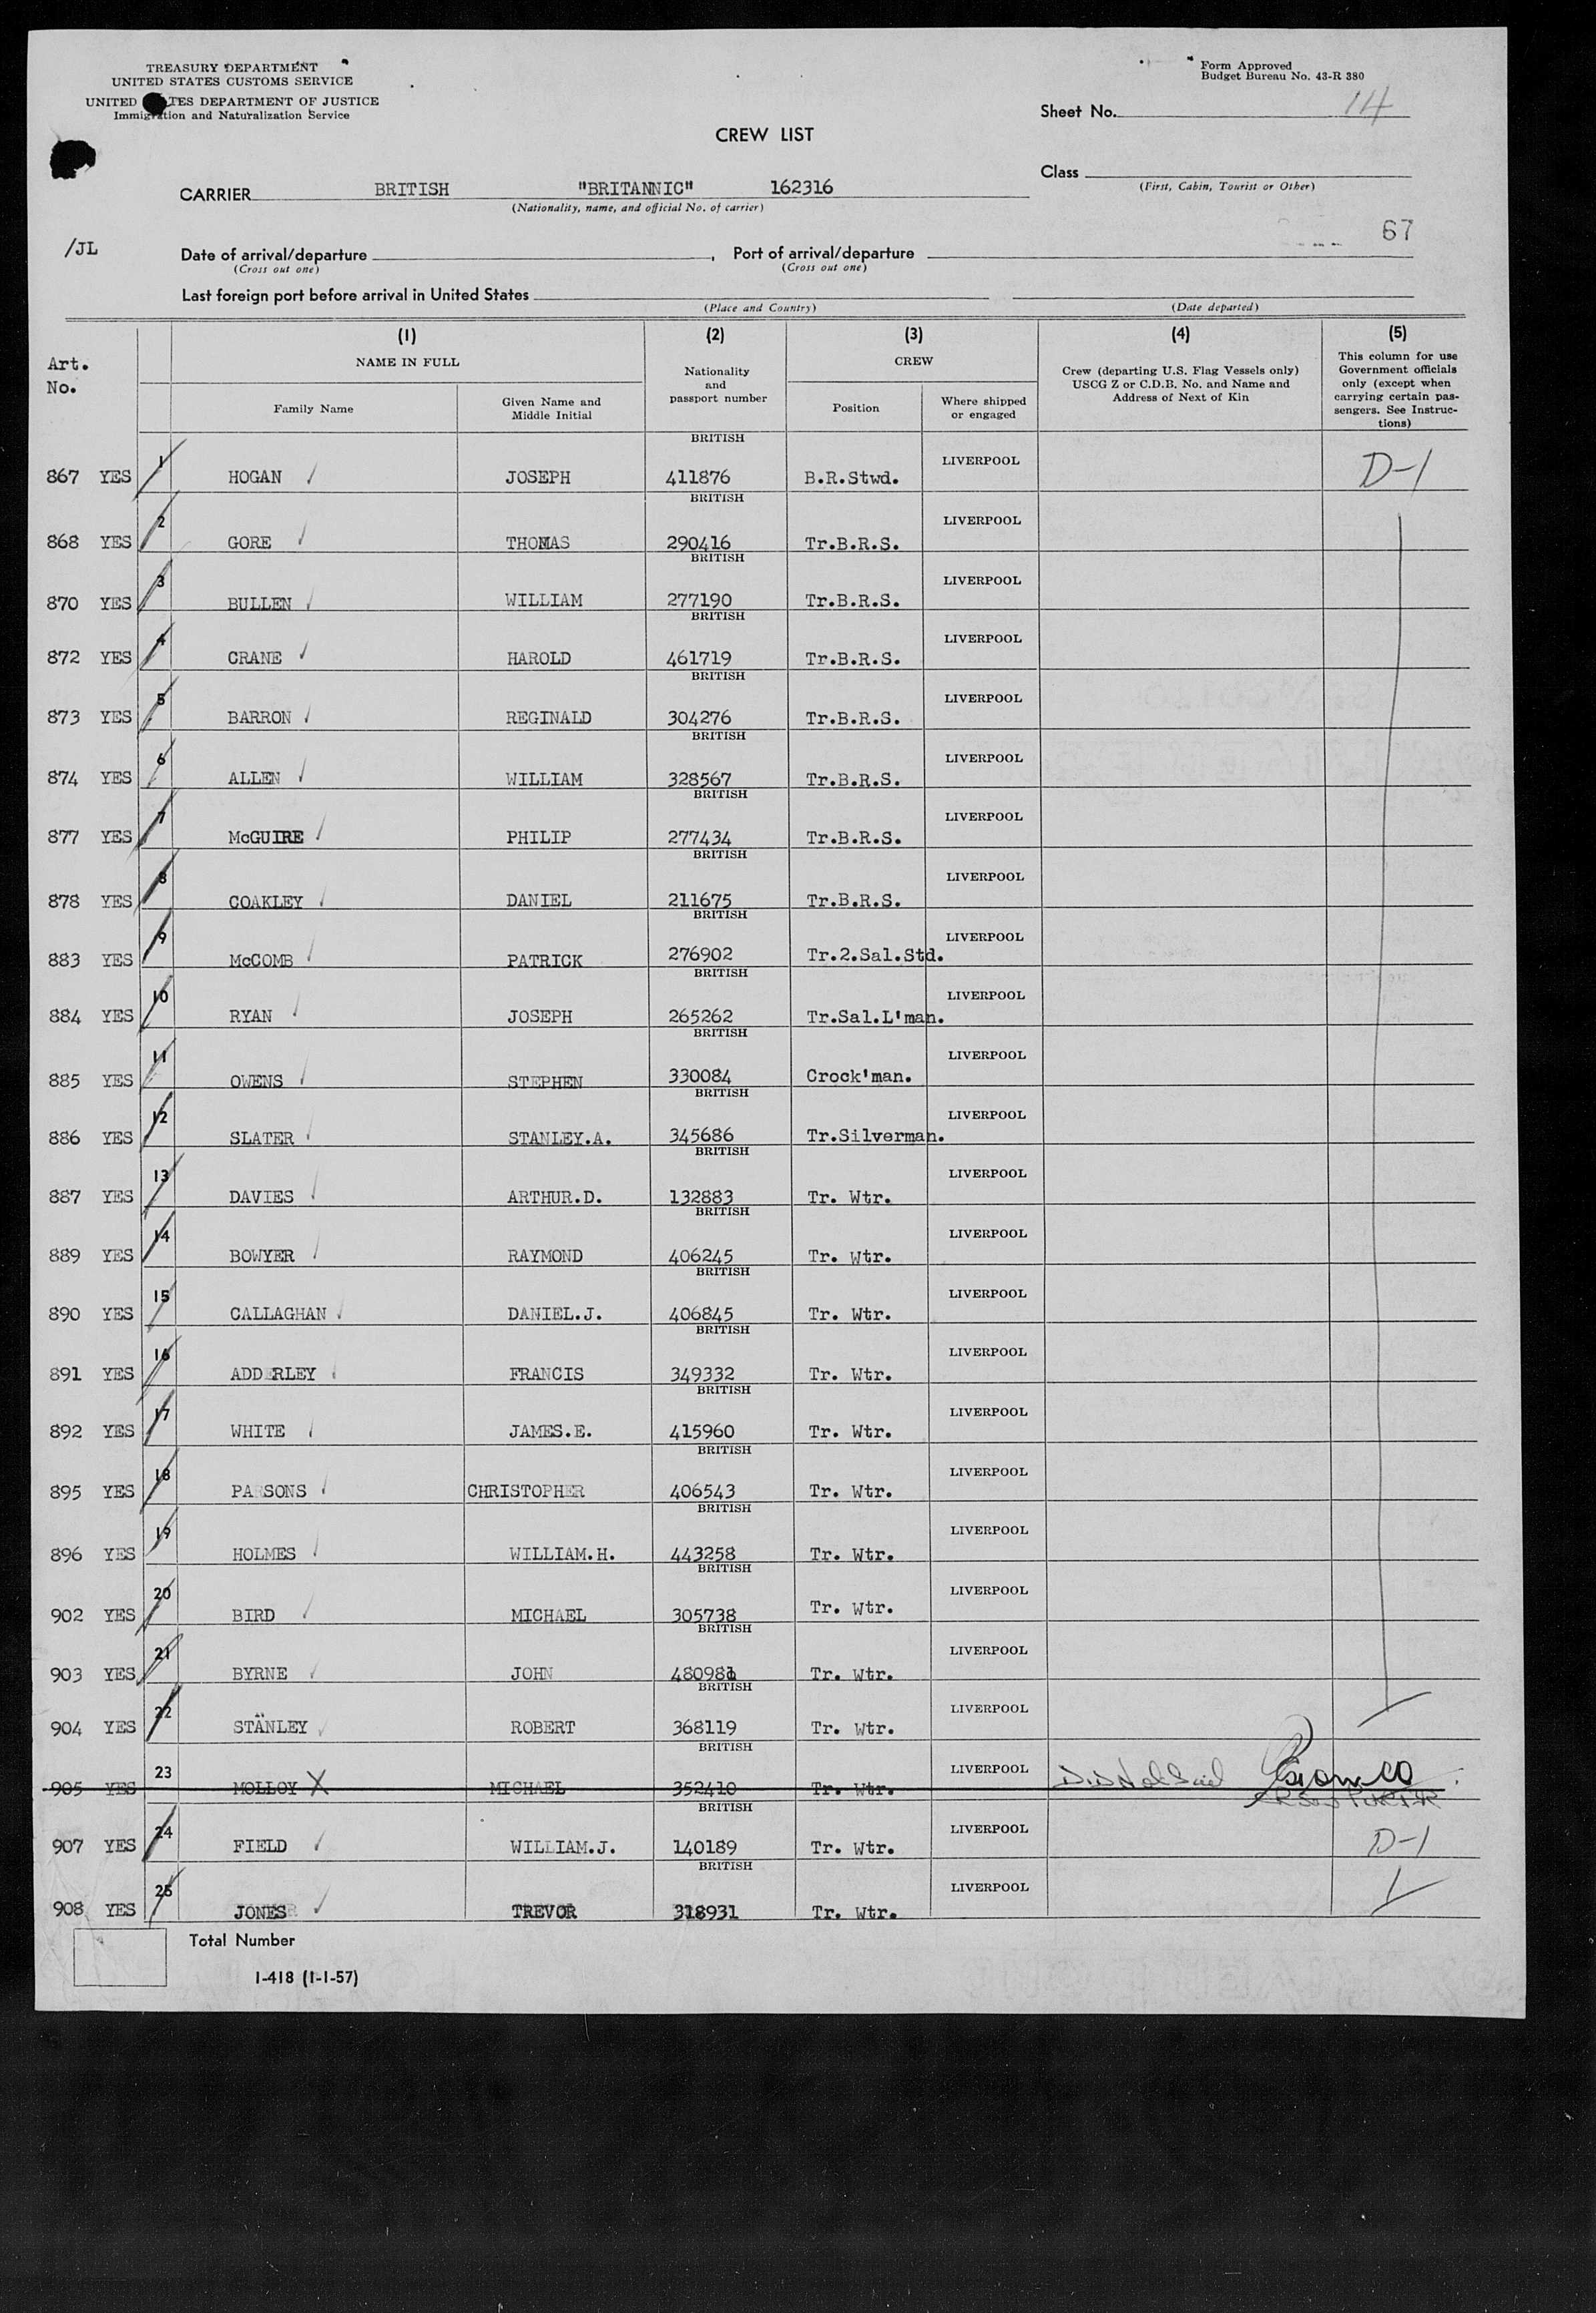 TREASURY DEPARTMENT
UNITED STATES CUSTOMS SERVICE
UNITED TES DEPARTMENT OF JUSTICE
Immigration and Naturalization Service
Form Approved
Budget Bureau No. 43-R 380
Sheet No. 14
CREW LIST
Class
(First, Cabin, Tourist or Other)
CARRIER BRITISH "BRITANNIC" 162316
(Nationality, name, and official No. of carrier)
67
/JL
Date of arrival/departure , Port of arrival/departure
(Cross out one) (Cross out one)
Last foreign port before arrival in United States
(Place and Country) (Date departed)
Art. No.
(1) (2) (3) (4) (5)
NAME IN FULL
Family Name
Given Name and Middle Initial
Nationality and passport number
CREW
Position
Where shipped or engaged
Crew (departing U.S. Flag Vessels only) USCG Z or C.D.B. No. and Name and Address of Next of Kin
This column for use Government officials only (except when carrying certain passengers. See Instructions)
867 YES 1 HOGAN JOSEPH BRITISH 411876 B.R.Stwd. LIVERPOOL D-1
868 YES 2 GORE THOMAS BRITISH 290416 Tr.B.R.S. LIVERPOOL
870 YES 3 BULLEN WILLIAM BRITISH 277190 Tr.B.R.S. LIVERPOOL
872 YES 4 CRANE HAROLD BRITISH 461719 Tr.B.R.S. LIVERPOOL
873 YES 5 BARRON REGINALD BRITISH 304276 Tr.B.R.S. LIVERPOOL
874 YES 6 ALLEN WILLIAM BRITISH 328567 Tr.B.R.S. LIVERPOOL
877 YES 7 McGUIRE PHILIP BRITISH 277434 Tr.B.R.S. LIVERPOOL
878 YES 8 COAKLEY DANIEL BRITISH 211675 Tr.B.R.S. LIVERPOOL
883 YES 9 McCOMB PATRICK BRITISH 276902 Tr.2.Sal.Std. LIVERPOOL
884 YES 10 RYAN JOSEPH BRITISH 265262 Tr.Sal.L'man. LIVERPOOL
885 YES 11 OWENS STEPHEN BRITISH 330084 Crock'man. LIVERPOOL
886 YES 12 SLATER STANLEY.A. BRITISH 345686 Tr.Silverman. LIVERPOOL
887 YES 13 DAVIES ARTHUR.D. BRITISH 132883 Tr. Wtr. LIVERPOOL
889 YES 14 BOWYER RAYMOND BRITISH 406245 Tr. Wtr. LIVERPOOL
890 YES 15 CALLAGHAN DANIEL.J. BRITISH 406845 Tr. Wtr. LIVERPOOL
891 YES 16 ADDERLEY FRANCIS BRITISH 349332 Tr. Wtr. LIVERPOOL
892 YES 17 WHITE JAMES.E. BRITISH 415960 Tr. Wtr. LIVERPOOL
895 YES 18 PARSONS CHRISTOPHER BRITISH 406543 Tr. Wtr. LIVERPOOL
896 YES 19 HOLMES WILLIAM.H. BRITISH 443258 Tr. Wtr. LIVERPOOL
902 YES 20 BIRD MICHAEL BRITISH 305738 Tr. Wtr. LIVERPOOL
903 YES 21 BYRNE JOHN BRITISH 480981 Tr. Wtr. LIVERPOOL
904 YES 22 STANLEY ROBERT BRITISH 368119 Tr. Wtr. LIVERPOOL
905 YES 23 MOLLOY X MICHAEL BRITISH 352410 Tr. Wtr. LIVERPOOL Did Not Sail
907 YES 24 FIELD WILLIAM.J. BRITISH 140189 Tr. Wtr. LIVERPOOL D-1
908 YES 25 JONES TREVOR BRITISH 318931 Tr. Wtr. LIVERPOOL
Total Number
I-418 (1-1-57)